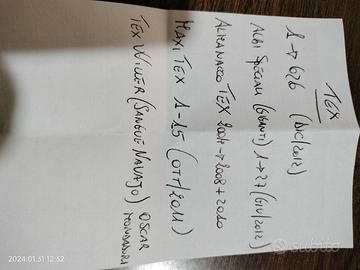 TEX
1 → 626 (DIC/2012)
ALBI SPECIALI (GIGANTI) 1 → 27 (GIU/2012)
ALMANACCO TEX 2004 → 2008 + 2010
MAXI TEX 1-15 (OTT/2011)
TEX WILLER (SANGUE NAVAJO) OSCAR
MONDADORI
2024.01.31 12:52
subito.it